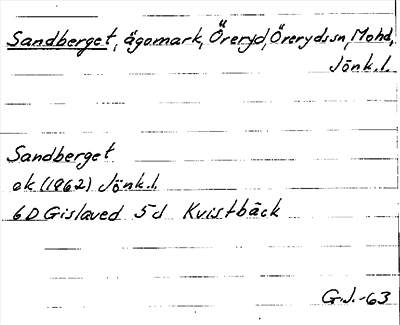 Sandberget, ägomark, Öreryd, Öreryds sn, Mohd,
Jönk.l.
Sandberget
ek (1962) Jönk.l.
6D Gislaved 5d Kvistbäck
G.J.-63